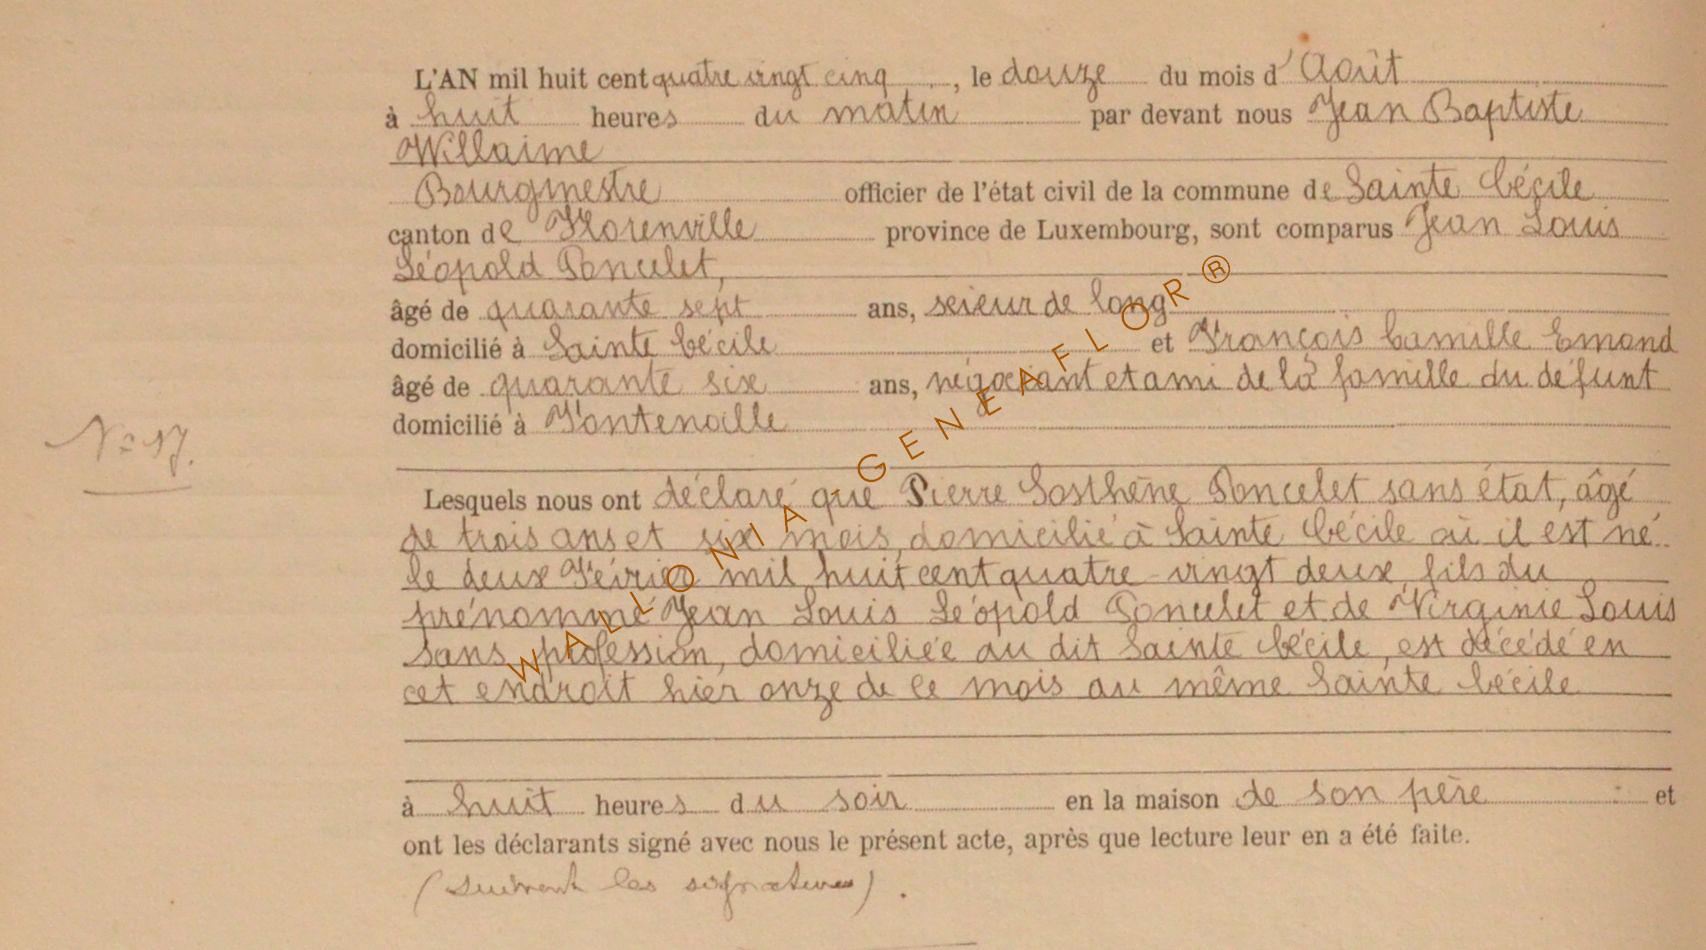 L'AN mil huit cent quatre vingt cinq, le douze du mois d'Août
à huit heures du matin par devant nous Jean Baptiste
Willaime
Bourgmestre officier de l'état civil de la commune de Sainte Cécile
canton de Florenville province de Luxembourg, sont comparus Jean Louis
Léopold Poncelet,
âgé de quarante sept ans, scieur de long
domicilié à Sainte Cécile et François Camille Emond
âgé de quarante six ans, négociant et ami de la famille du défunt
domicilié à Fontenoille
N° 17.
Lesquels nous ont déclaré que Pierre Sosthène Poncelet sans état, âgé
de trois ans et six mois, domicilié à Sainte Cécile où il est né
le deux Février mil huit cent quatre-vingt deux, fils du
prénommé Jean Louis Léopold Poncelet et de Virginie Louis
sans profession, domiciliée au dit Sainte Cécile, est décédé en
cet endroit hier onze de ce mois au même Sainte Cécile
à huit heures du soir en la maison de son père et
ont les déclarants signé avec nous le présent acte, après que lecture leur en a été faite.
(Suivent les signatures).
WALLONIA GENEAFLOR®